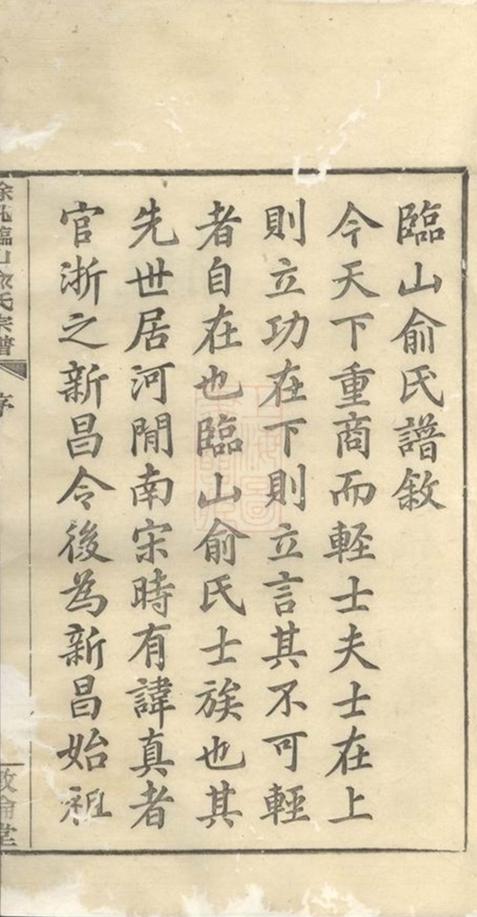 臨山俞氏譜敘
今天下重商而輕士夫士在上
則立功在下則立言其不可輕
者自在也臨山俞氏士族也其
先世居河閒南宋時有諱真者
官浙之新昌令後為新昌始祖
餘姚臨山俞氏宗譜 序 敦倫堂